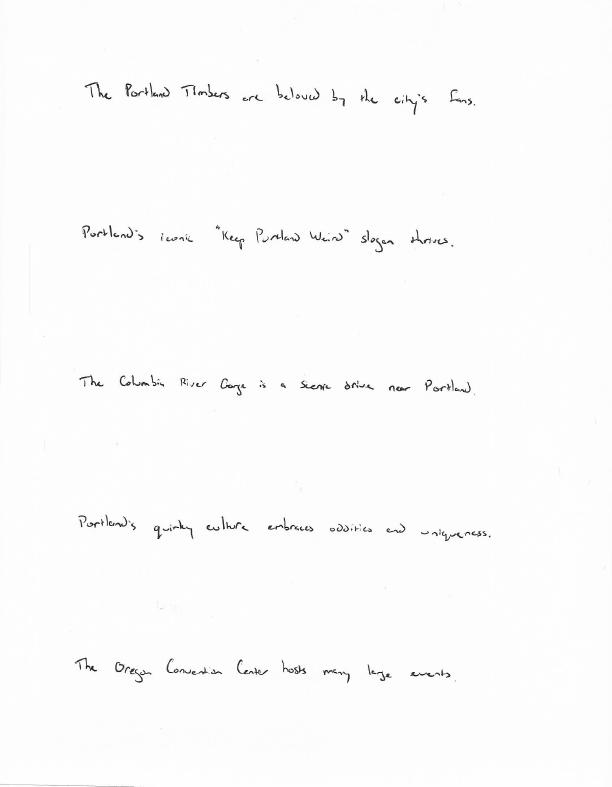 The Portland Timbers are beloved by the city's fans.
Portland's iconic "Keep Portland Weird" slogan thrives.
The Columbia River Gorge is a scenic drive near Portland.
Portland's quirky culture embraces oddities and uniqueness.
The Oregon Convention Center hosts many large events.